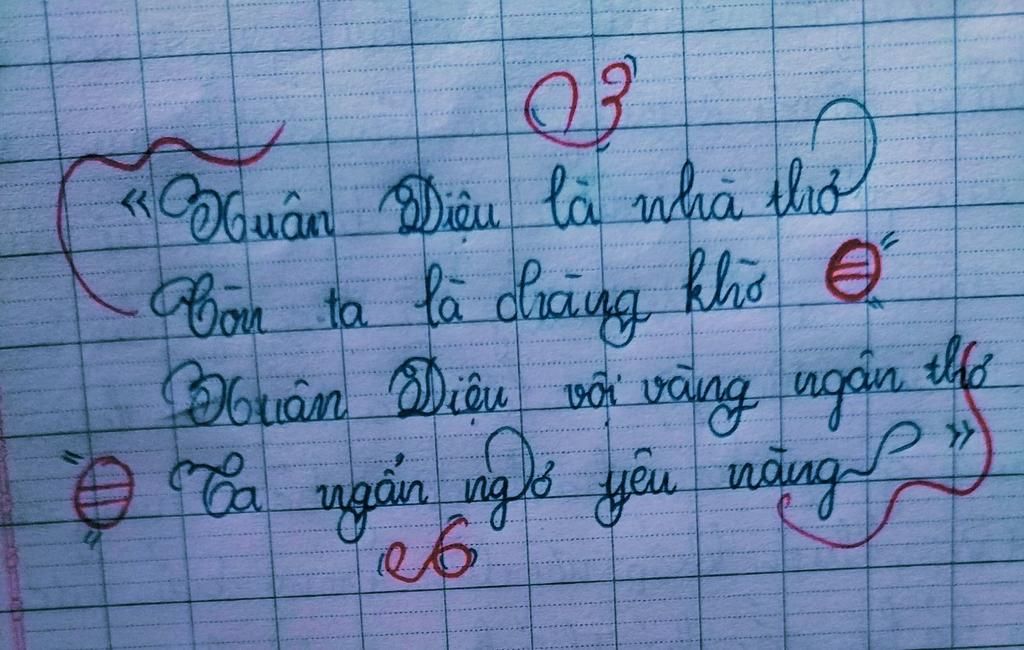 03
« Xuân Diệu là nhà thơ
Còn ta là chàng khờ
Xuân Diệu vội vàng ngắn thơ
Ta ngẩn ngơ yêu nàng »